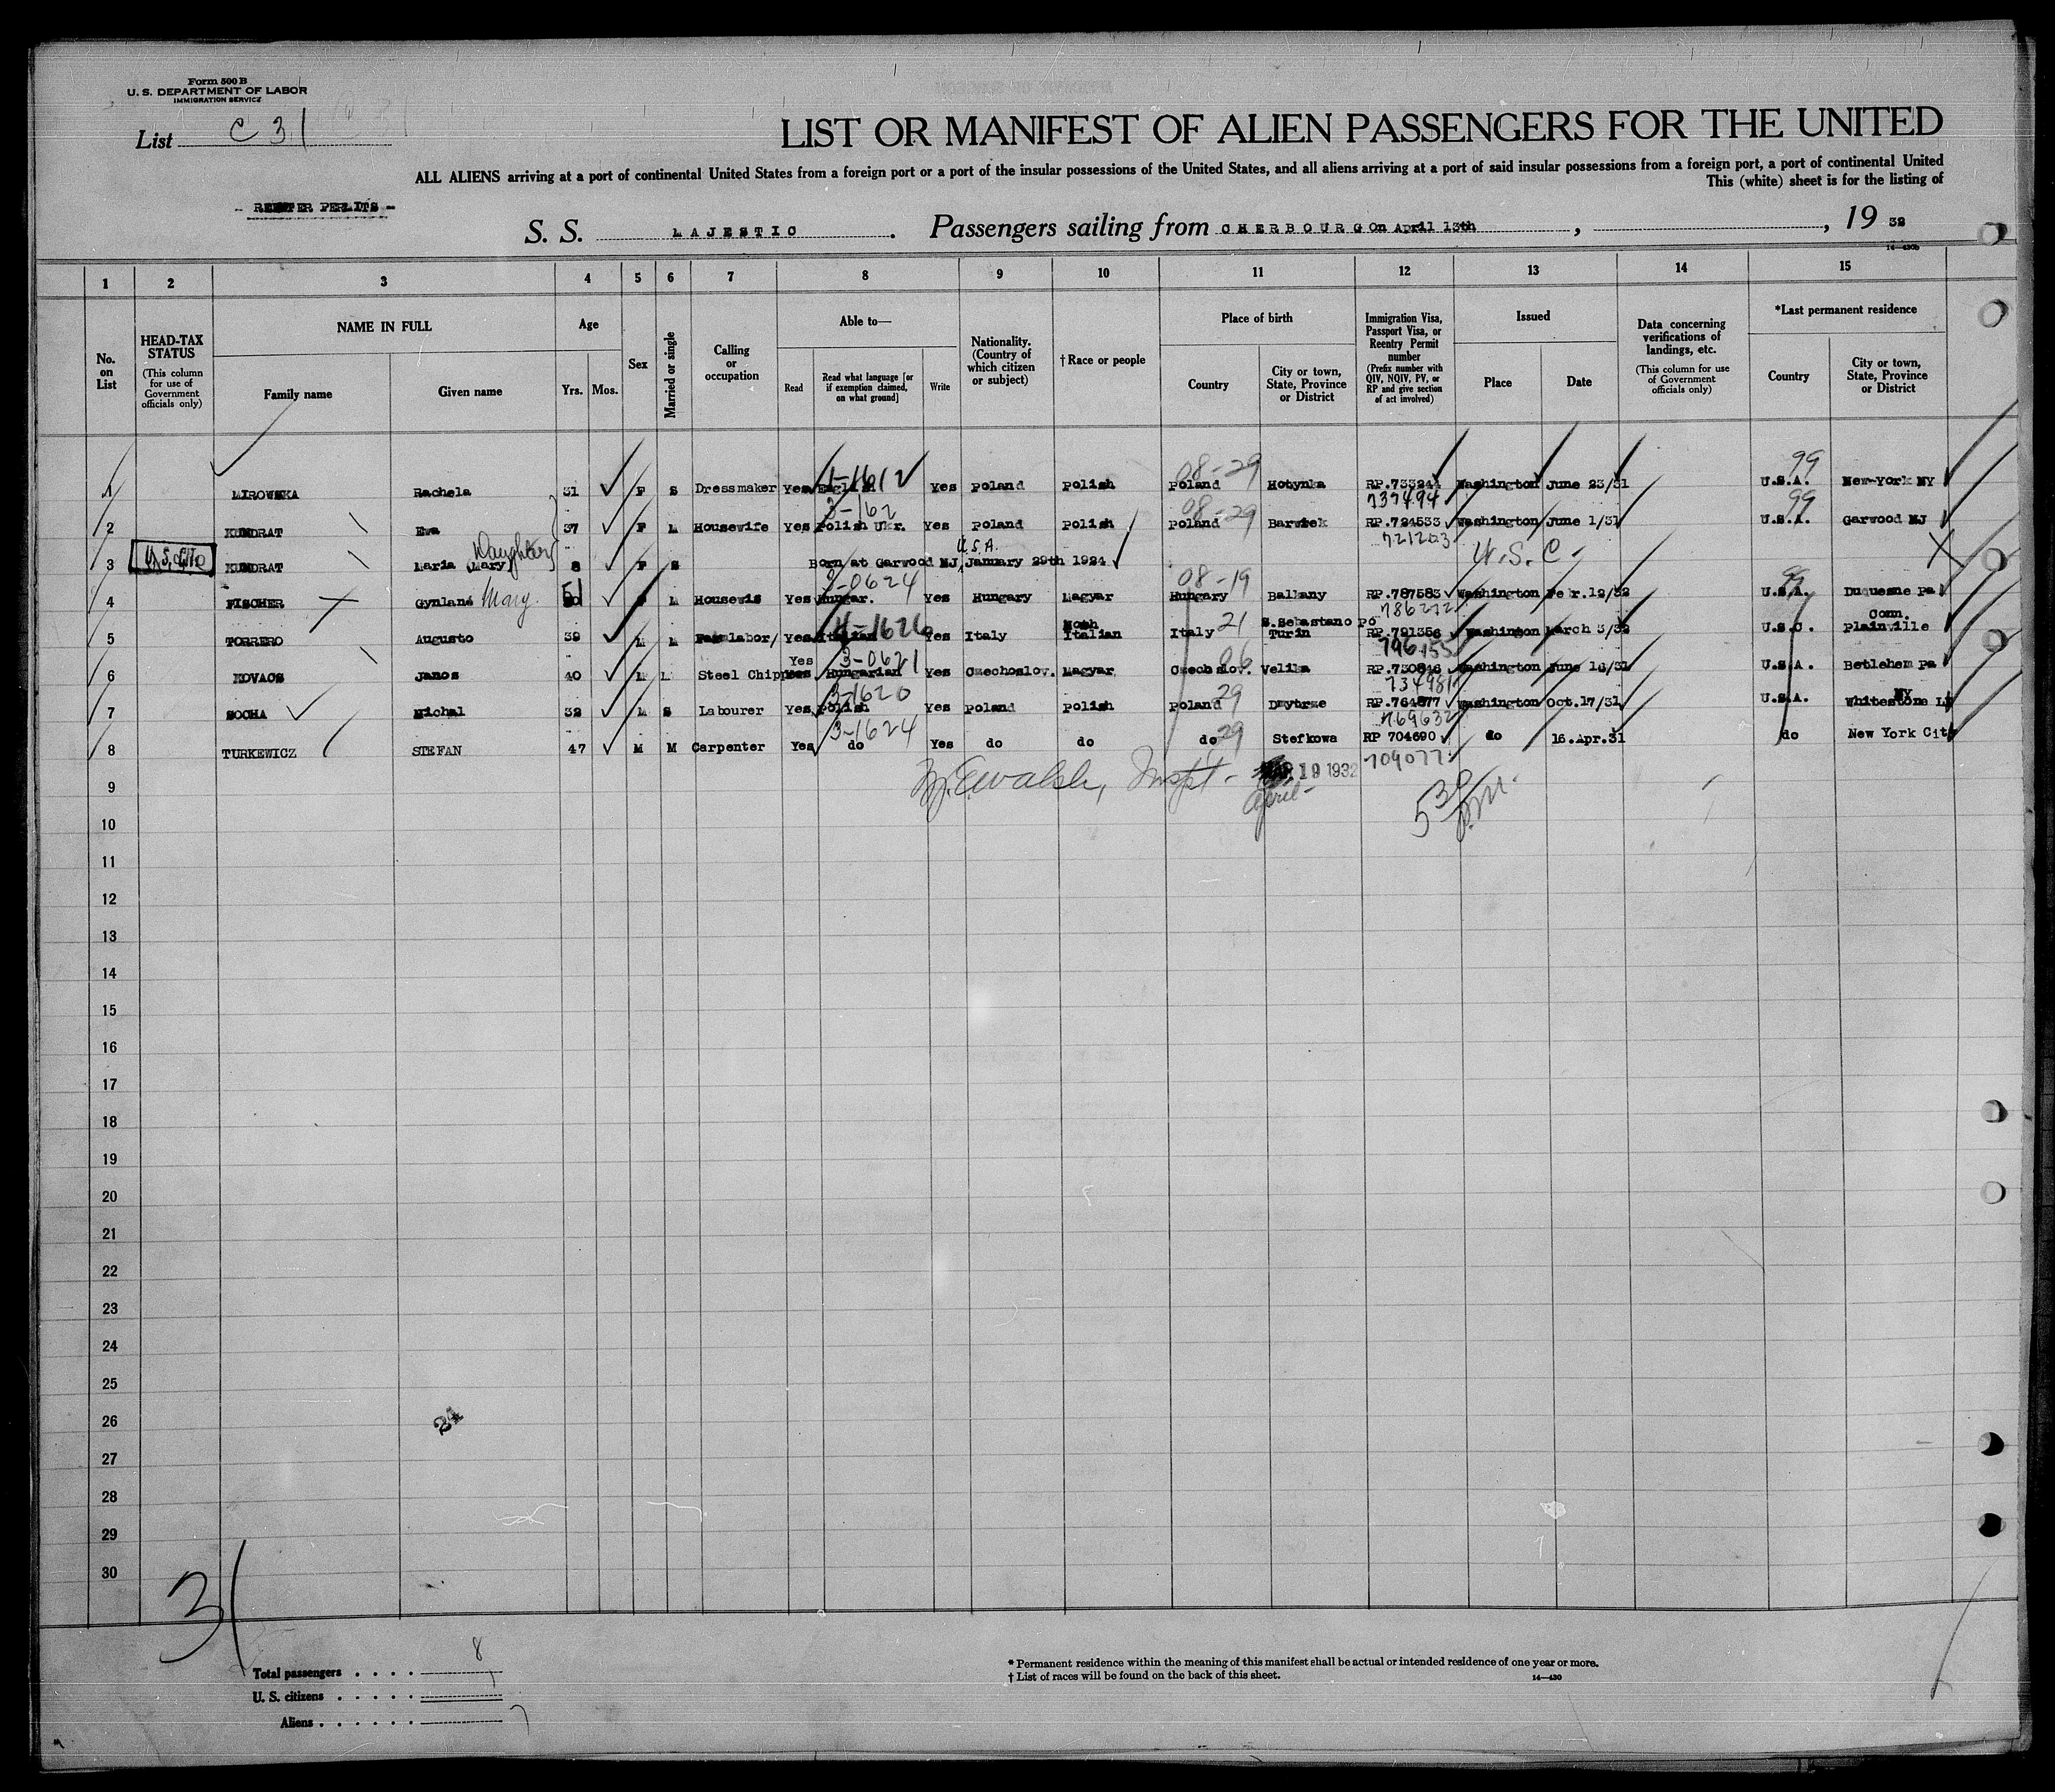 Form 500 B
U. S. DEPARTMENT OF LABOR
IMMIGRATION SERVICE
List C 31
LIST OR MANIFEST OF ALIEN PASSENGERS FOR THE UNITED
ALL ALIENS arriving at a port of continental United States from a foreign port or a port of the insular possessions of the United States, and all aliens arriving at a port of said insular possessions from a foreign port, a port of continental United
This (white) sheet is for the listing of
S. S. MAJESTIC. Passengers sailing from CHERBOURG On April 13th, , 19 32
1 2 3 4 5 6 7 8 9 10 11 12 13 14 15
No. on List
HEAD-TAX STATUS
(This column for use of Government officials only)
NAME IN FULL
Family name Given name
Age
Yrs. Mos.
Sex
Married or single
Calling or occupation
Able to—
Read Read what language [or if exemption claimed, on what ground] Write
Nationality. (Country of which citizen or subject)
† Race or people
Place of birth
Country City or town, State, Province or District
Immigration Visa, Passport Visa, or Reentry Permit number
(Prefix number with QIV, NQIV, PV, or RP and give section of act involved)
Issued
Place Date
Data concerning verifications of landings, etc.
(This column for use of Government officials only)
*Last permanent residence
Country City or town, State, Province or District
1-1612 08-29 99
1 MIROWSKA Rachela 31 F S Dressmaker Yes English Yes Poland Polish Poland Hotynka RP.733244 Washington June 23/31 U.S.A. New-York NY
3-162 08-29 737494 99
2 KUNDRAT Ewa 37 F M Housewife Yes Polish Ukr. Yes Poland Polish Poland RP.724533 Washington June 1/31 U.S.A. Garwood NJ
Daughter U.S.A. 721203 U.S.C.
3 KUNDRAT Maria (Mary) 8 F S Born at Garwood NJ, January 29th 1924
3-0624 08-19 99
4 FISCHER Mary 51 M Housewis Yes Hungar. Yes Hungary Magyar Hungary Ballany RP.787583 Washington U.S.A. Duquesne Pa
4-1626 North 21 S.Sebastano Po 786272 Conn.
5 TORRERO Augusto 39 M M labor/ Yes Italian Yes Italy Italian Italy Turin RP.791356 Washington March 3/32 Plainville
Yes 3-0621 06 796155
6 KOVACS Janos 40 M M Steel Chipper Hungarian Yes Czechoslov. Magyar Czechoslov. Velika RP.730846 Washington June 16/31 U.S.A. Betlehem Pa
3-1620 29 734981 NY
7 SOCHA Michal 32 M S Labourer Yes Polish Yes Poland Polish Poland RP.764877 Washington Oct.17/31 U.S.A. Whitestone LI
3-1624 29 769632
8 TURKEWICZ STEFAN 47 M M Carpenter Yes do Yes do do do Stefkowa RP 704690 do 16.Apr.31 do New York City
Walsh, Inspt. 19 1932 709077
April 530 P.M.
9
10
11
12
13
14
15
16
17
18
19
20
21
22
23
24
25
26
24
27
28
29
30
31
Total passengers . . . . 8
U. S. citizens . . . . . 1
Aliens . . . . . . 7
* Permanent residence within the meaning of this manifest shall be actual or intended residence of one year or more.
† List of races will be found on the back of this sheet.
14—430